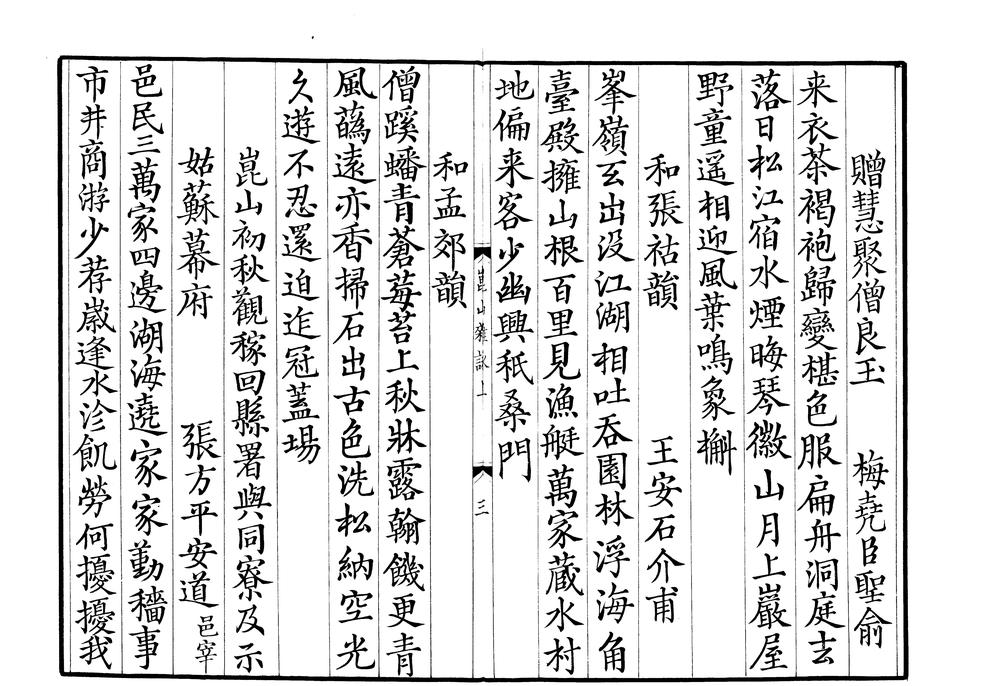 贈慧聚僧良玉　梅堯臣聖俞
来衣茶褐袍歸變椹色服扁舟洞庭去
落日松江宿水煙晦琴徽山月上巖屋
野童遥相迎風葉鳴象槲
和張祜韻　王安石介甫
峯嶺玄出没江湖相吐吞園林浮海角
臺殿擁山根百里見漁艇萬家蔵水村
地偏来客少幽興秖桑門
崑山雜詠上　三
和孟郊韻
僧蹊蟠青蒼莓苔上秋牀露翰饑更青
風蘤遠亦香掃石出古色洗松納空光
久遊不忍還迫迮冠蓋場
崑山初秋觀稼回縣署與同寮及示
姑蘇幕府　張方平安道　邑宰
邑民三萬家四邊湖海遶家家勤穡事
市井商游少荐歲逢水沴飢勞何擾擾我